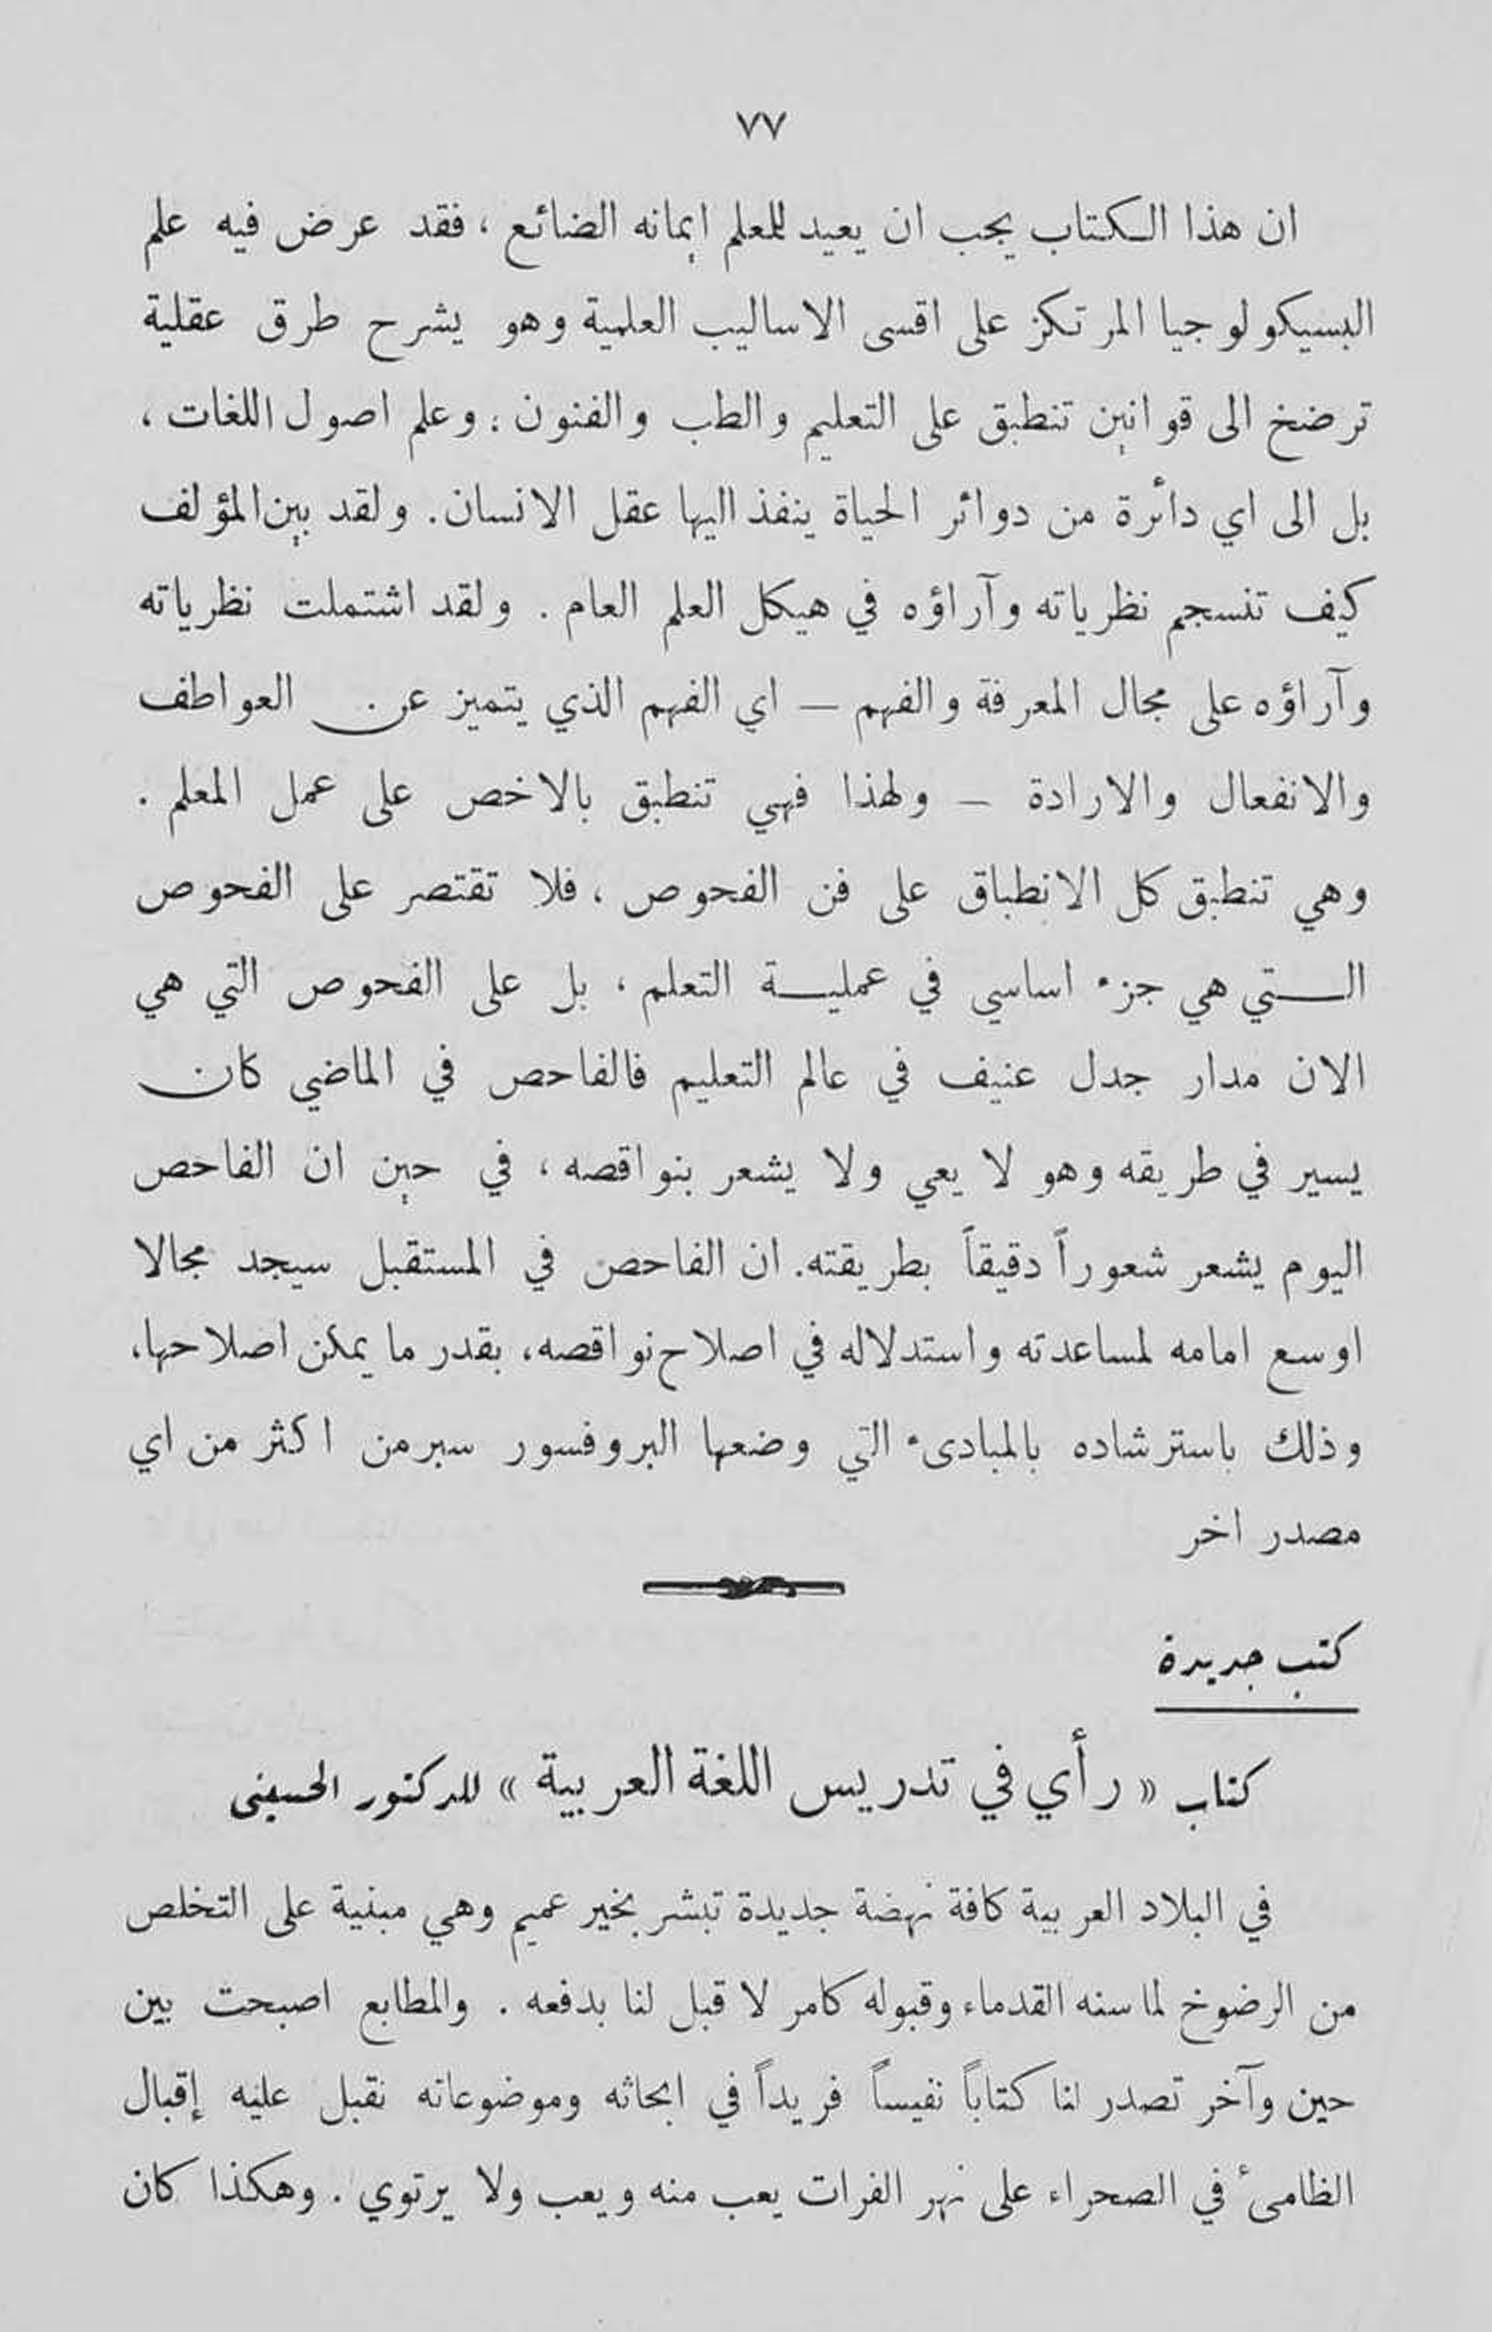 ٧٧
ان هذا الكتاب يجب ان يعيد للمعلم ايمانه الضائع ، فقد عرض فيه علم
البسيكولوجيا المرتكز على اقسى الاساليب العلمية وهو يشرح طرق عقلية
ترضخ الى قوانين تنطبق على التعليم والطب والفنون : وعلم اصول اللغات ،
بل الى اي دائرة من دوائر الحياة ينفذ اليها عقل الانسان . ولقد بين المؤلف
كيف تنسجم نظرياته وآراؤه في هيكل العلم العام . ولقد اشتملت نظرياته
وآراؤه على مجال المعرفة والفهم – اي الفهم الذي يتميز عن العواطف
والانفعال والارادة – ولهذا فهي تنطبق بالاخص على عمل المعلم .
وهي تنطبق كل الانطباق على فن الفحوص ، فلا تقتصر على الفحوص
التي هي جزء اساسي في عملية التعلم ، بل على الفحوص التي هي
الان مدار جدل عنيف في عالم التعليم فالفاحص في الماضي كان
يسير في طريقه وهو لا يعي ولا يشعر بنواقصه ، في حين ان الفاحص
اليوم يشعر شعوراً دقيقاً بطريقته . ان الفاحص في المستقبل سيجد مجالا
اوسع امامه لمساعدته واستدلاله في اصلاح نواقصه ، بقدر ما يمكن اصلاحها ،
وذلك باسترشاده بالمبادىء التي وضعها البروفسور سبرمن اكثر من اي
مصدر اخر
كتب جديدة
كتاب « رأي في تدريس اللغة العربية » للدكتور الحسيني
في البلاد العربية كافة نهضة جديدة تبشر بخير عميم وهي مبنية على التخلص
من الرضوخ لما سنه القدماء وقبوله كامر لا قبل لنا بدفعه . والمطابع اصبحت بين
حين وآخر تصدر لنا كتاباً نفيساً فريداً في ابحاثه وموضوعاته نقبل عليه إقبال
الظامىء في الصحراء على نهر الفرات يعب منه ويعب ولا يرتوي . وهكذا كان